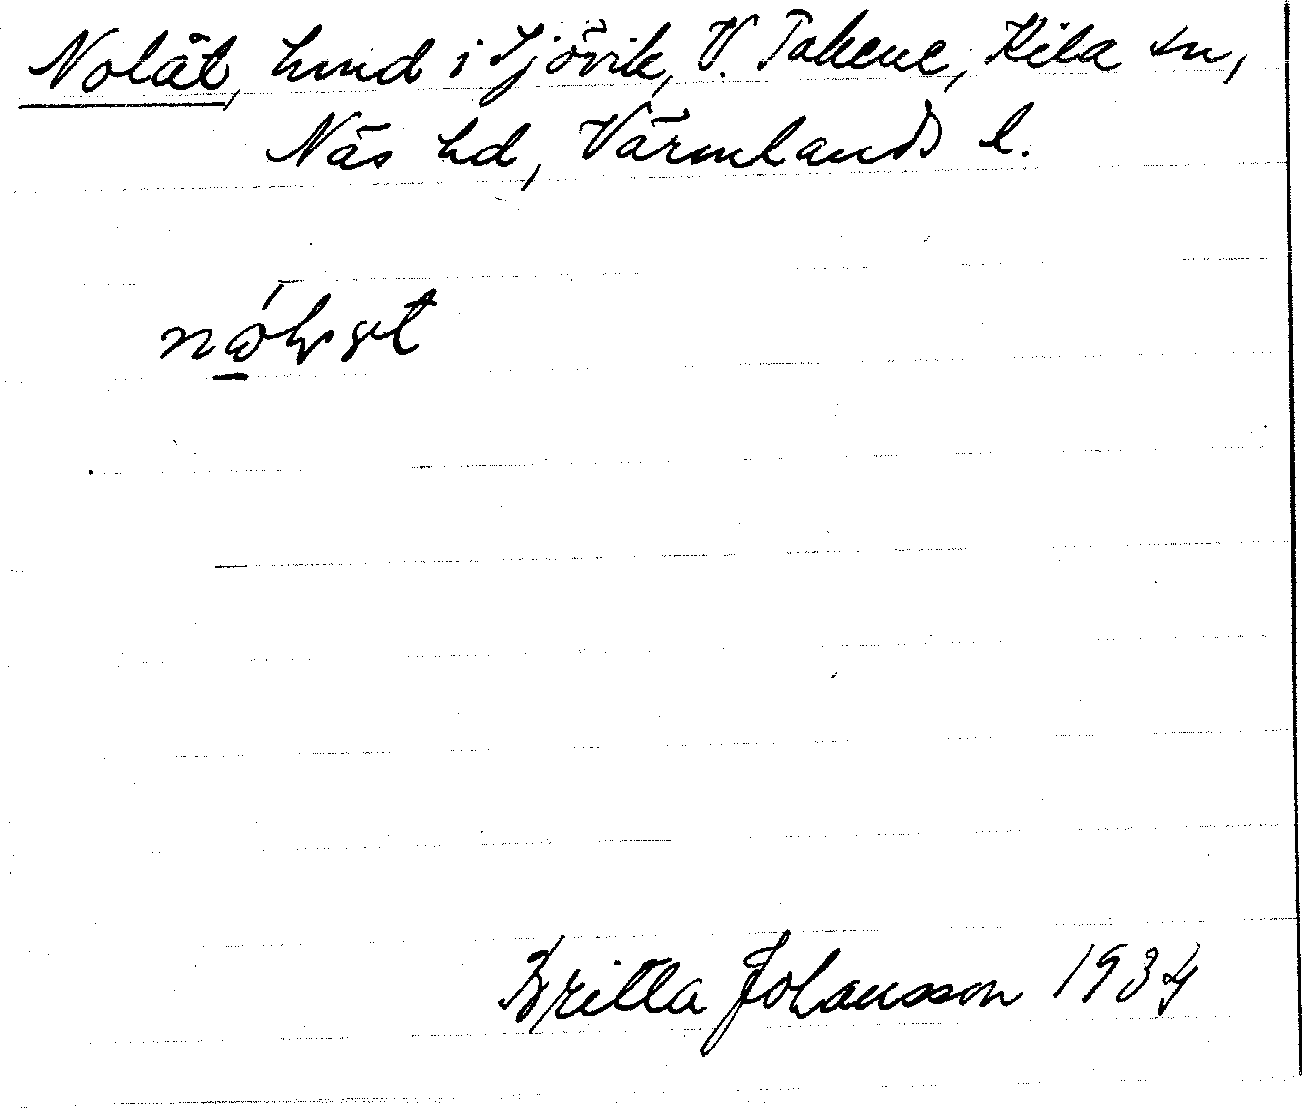 Nolät, hmd i Sjövik, V. Takene, Kila sn,
Näs hd, Värmlands l.
Britta Johansson 1934